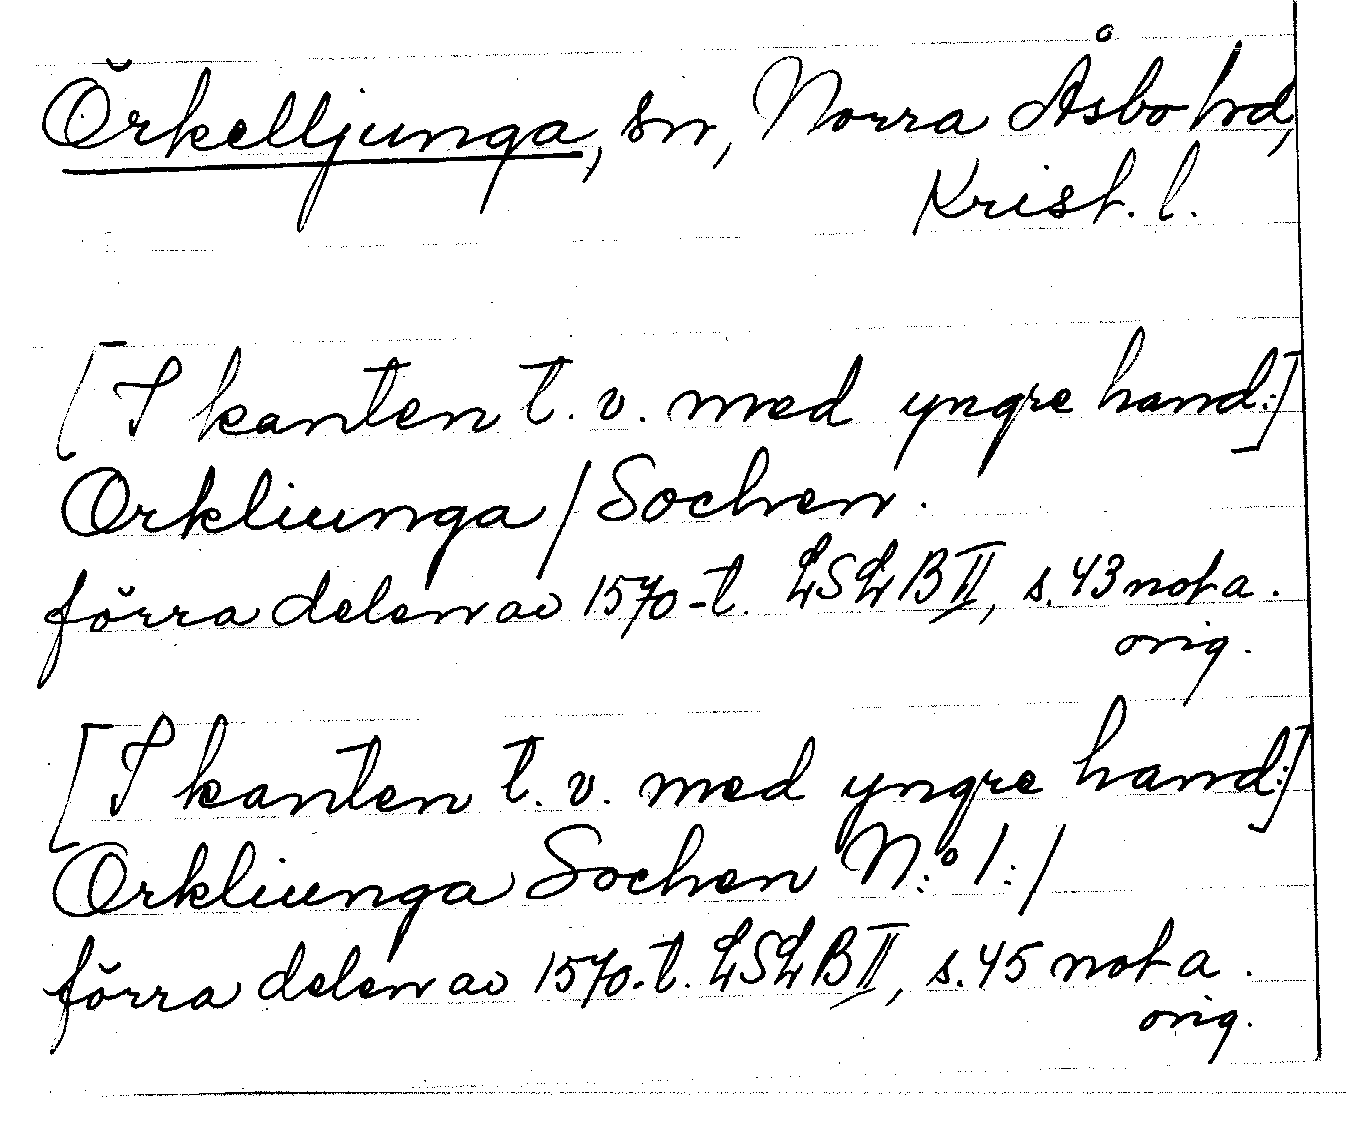 Örkelljunga, sn, Norra Åsbo hd,
Krist. l.
[I kanten t. v. med yngre hand:]
Orkliunga / Sochen.
förra delen av 1570-t. LSLB II, s. 43 not a.
orig.
[I kanten t. v. med yngre hand:]
Orkliunga Sochen N:o 1: /
förra delen av 1570-t. LSLB II, s. 45 not a.
orig.